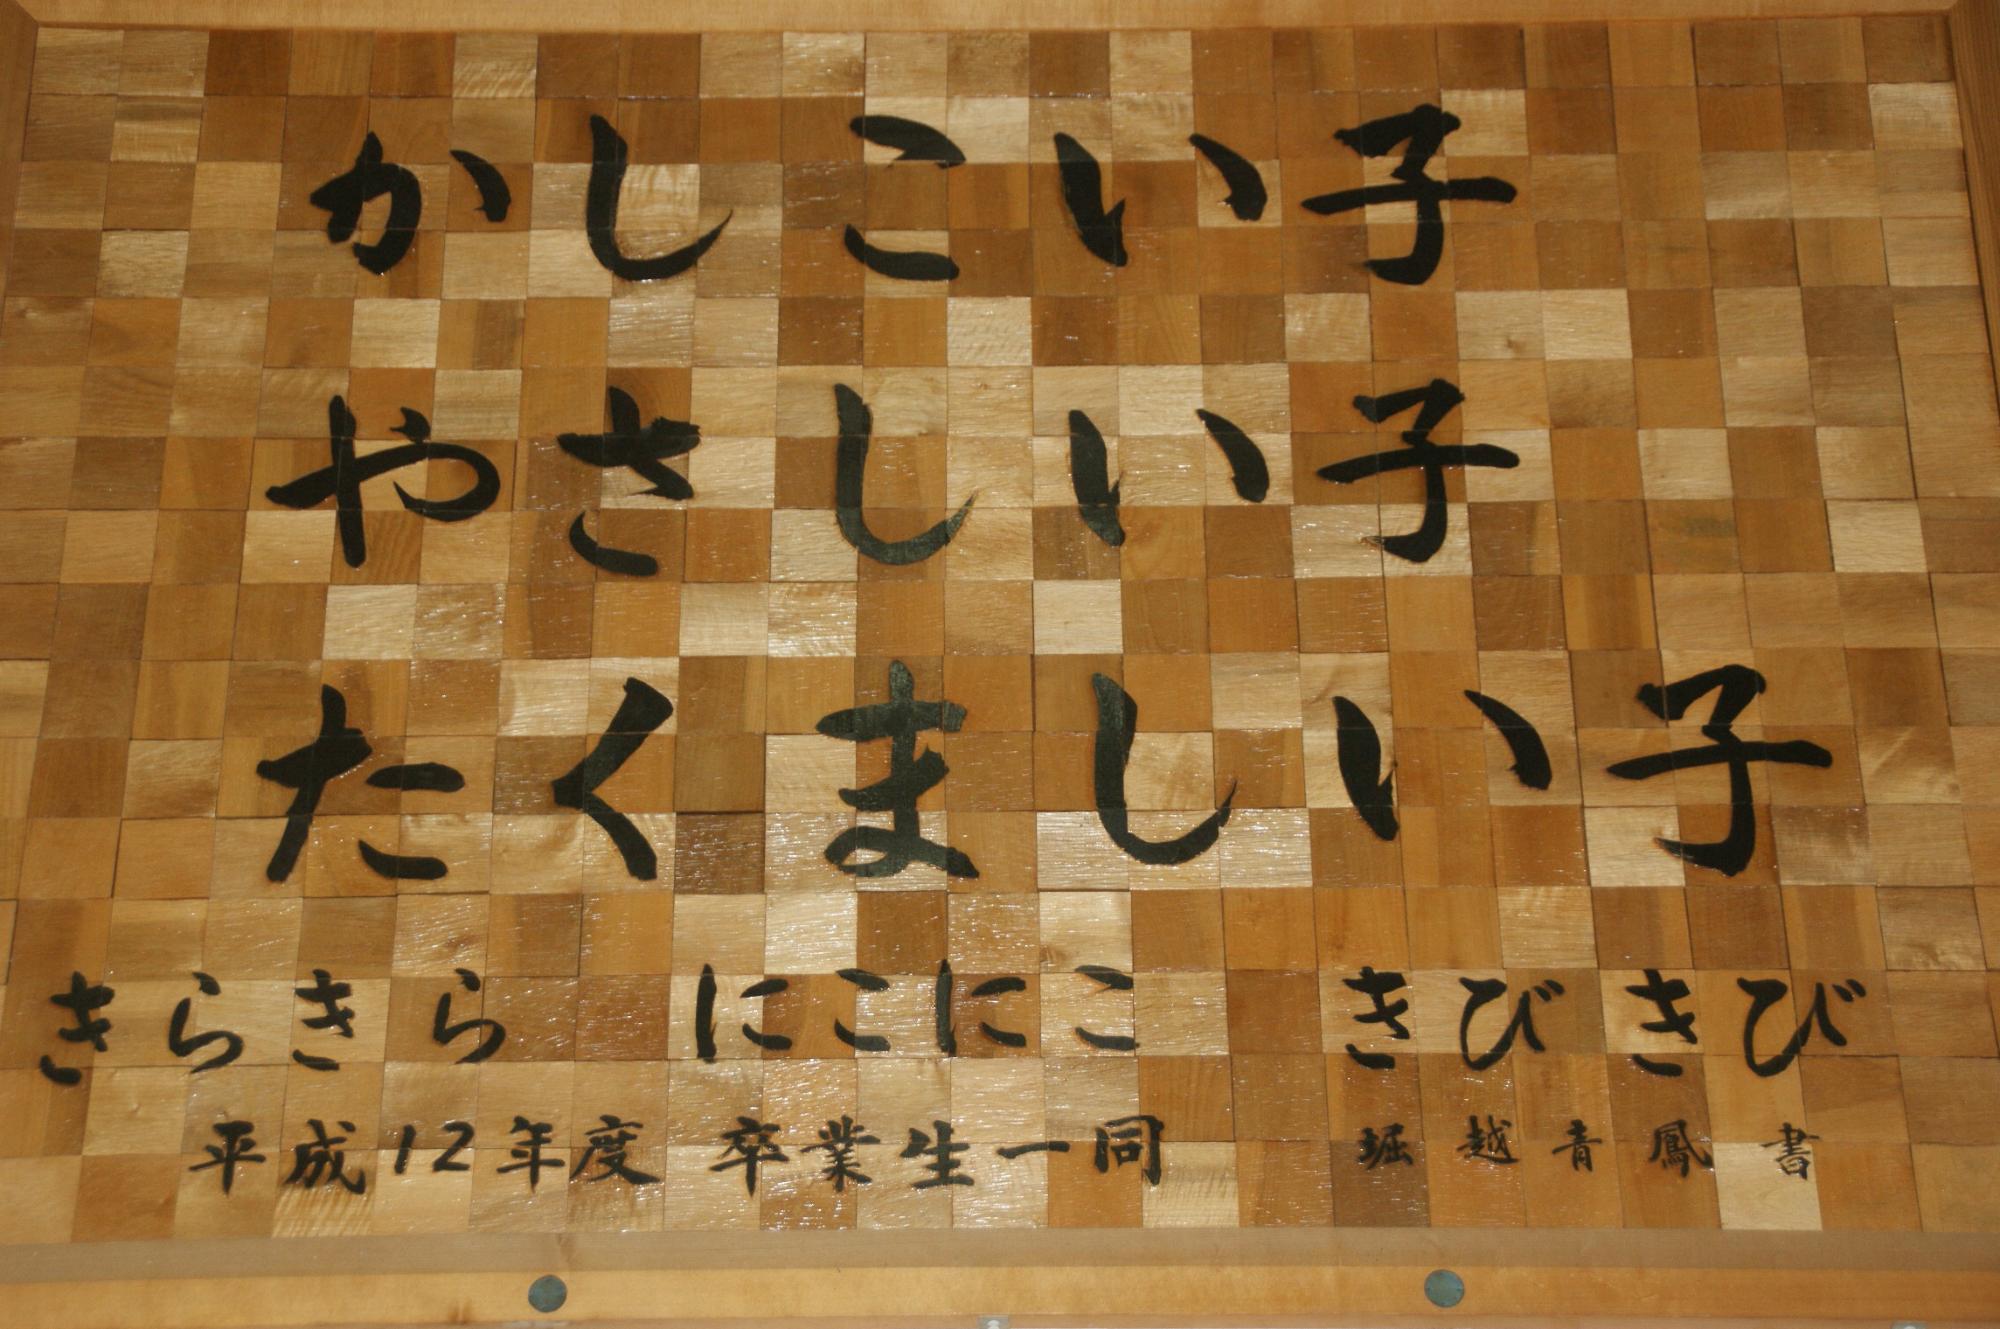 かしこい子
やさしい子
たくましい子
きらきら にこにこ きびきび
平成12年度 卒業生一同 堀越青鳳書